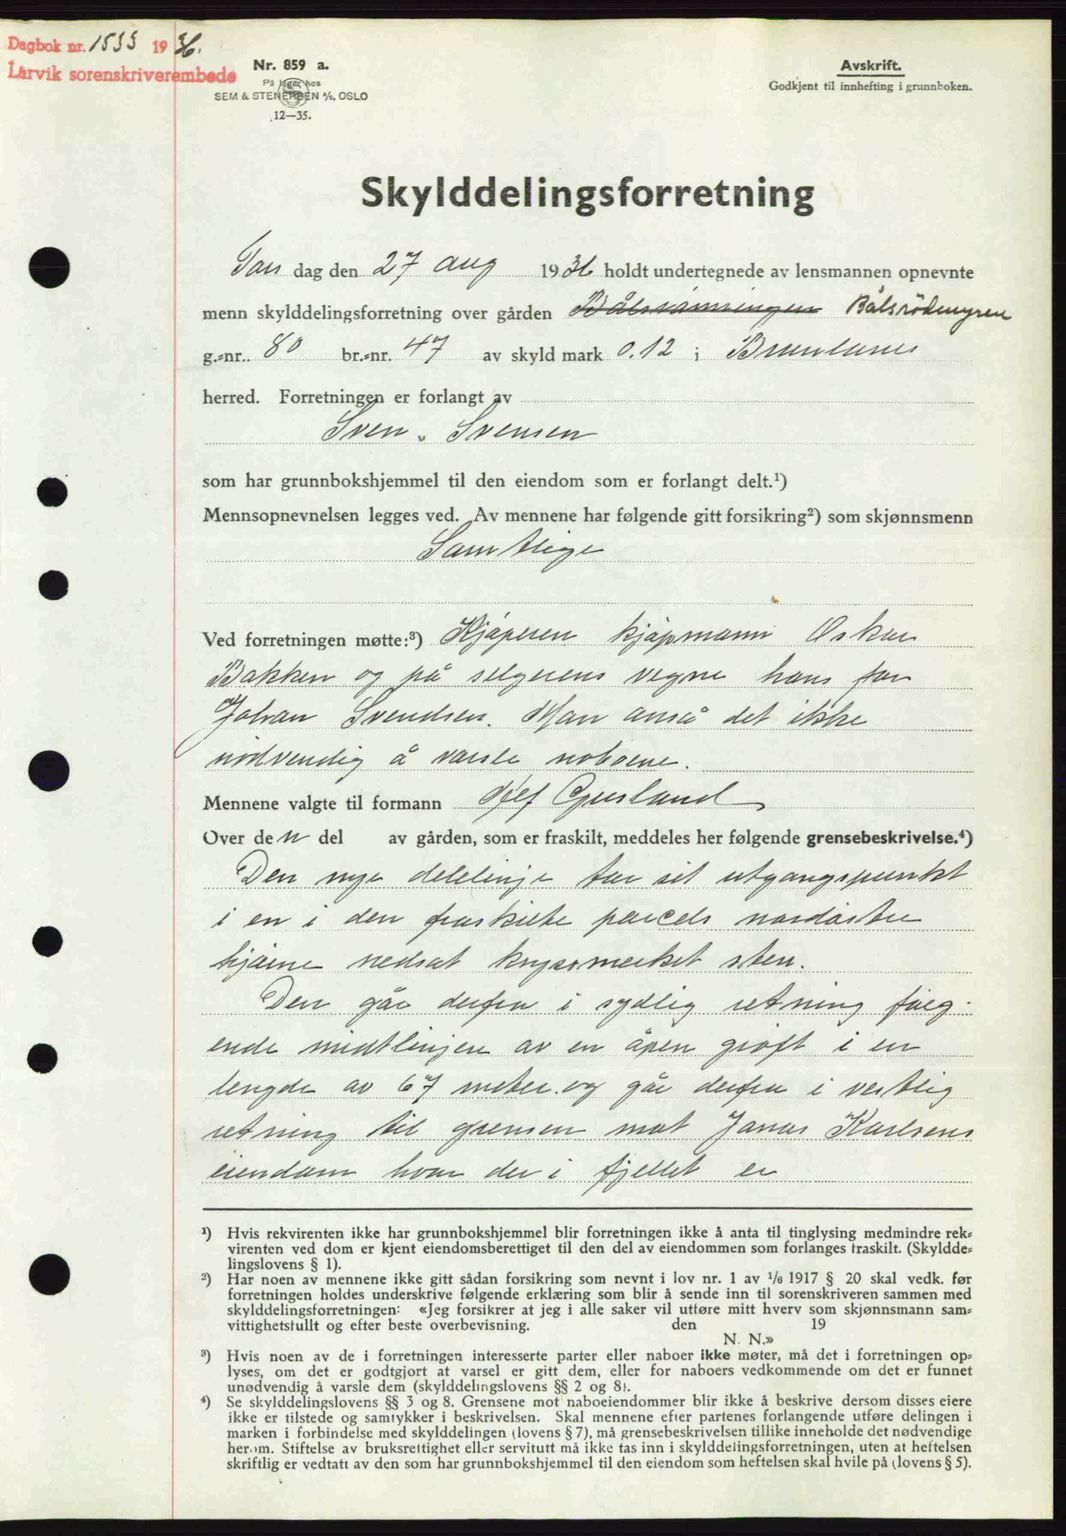 Dagbok nr. 1533 1936.
Larvik sorenskriverembede
Nr. 859 a.
På lager hos
SEM & STENERSEN A/S, OSLO
12—35.
Avskrift.
Godkjent til innhefting i grunnboken.
Skylddelingsforretning
Tors dag den 27 aug 1936 holdt undertegnede av lensmannen opnevnte
menn skylddelingsforretning over gården Bålsrødmyren
g.=nr. 80 br.=nr. 47 av skyld mark 0.12 i Brunlanes
herred. Forretningen er forlangt av
Sven Svensen
som har grunnbokshjemmel til den eiendom som er forlangt delt.¹)
Mennsopnevnelsen legges ved. Av mennene har følgende gitt forsikring²) som skjønnsmenn
Samtlige
Ved forretningen møtte:³) Kjøperen kjøpmann Oskar
Bakken og på selgerens vegne hans far
Johan Svendsen. Man anså det ikke
nødvendig å varsle naboene.
Mennene valgte til formann Gusland
Over den del av gården, som er fraskilt, meddeles her følgende grensebeskrivelse.⁴)
Den nye delelinje tar sit utgangspunkt
i en i den fraskilte parcels nordøstre
hjørne nedsat kryssmerket sten.
Den går derfra i sydlig retning følg-
ende midtlinjen av en åpen grøft i en
lengde av 67 meter og går derfra i vestlig
retning til grensen mot Jonas Karlsens
eiendom hvor der i fjellet er
¹) Hvis rekvirenten ikke har grunnbokshjemmel blir forretningen ikke å anta til tinglysing medmindre rek=
virenten ved dom er kjent eiendomsberettiget til den del av eiendommen som forlanges fraskilt. (Skyldde=
lingslovens § 1).
²) Har noen av mennene ikke gitt sådan forsikring som nevnt i lov nr. 1 av 1/6 1917 § 20 skal vedk. før
forretningen holdes underskrive følgende erklæring som blir å sende inn til sorenskriveren sammen med
skylddelingsforretningen: «Jeg forsikrer at jeg i alle saker vil utføre mitt hverv som skjønnsmann sam=
vittighetsfullt og efter beste overbevisning. den 19
N. N.»
³) Hvis noen av de i forretningen interesserte parter eller naboer ikke møter, må det i forretningen op=
lyses, om det er godtgjort at varsel er gitt dem, eller for naboers vedkommende om det er funnet
unødvendig å varsle dem (skylddelingslovens §§ 2 og 8).
⁴) Se skylddelingslovens §§ 3 og 8. Grensene mot naboeiendommer blir ikke å beskrive dersom disses eiere
ikke er tilstede og samtykker i beskrivelsen. Skal mennene efter partenes forlangende utføre delingen i
marken i forbindelse med skylddelingen (lovens § 7), må grensebeskrivelsen tillike inneholde det nødvendige
herom. Stiftelse av bruksrettighet eller servitutt må ikke tas inn i skylddelingsforretningen, uten at heftelsen
skriftlig er vedtatt av den som har grunnbokshjemmel til den eiendom som heftelsen skal hvile på (lovens § 5).